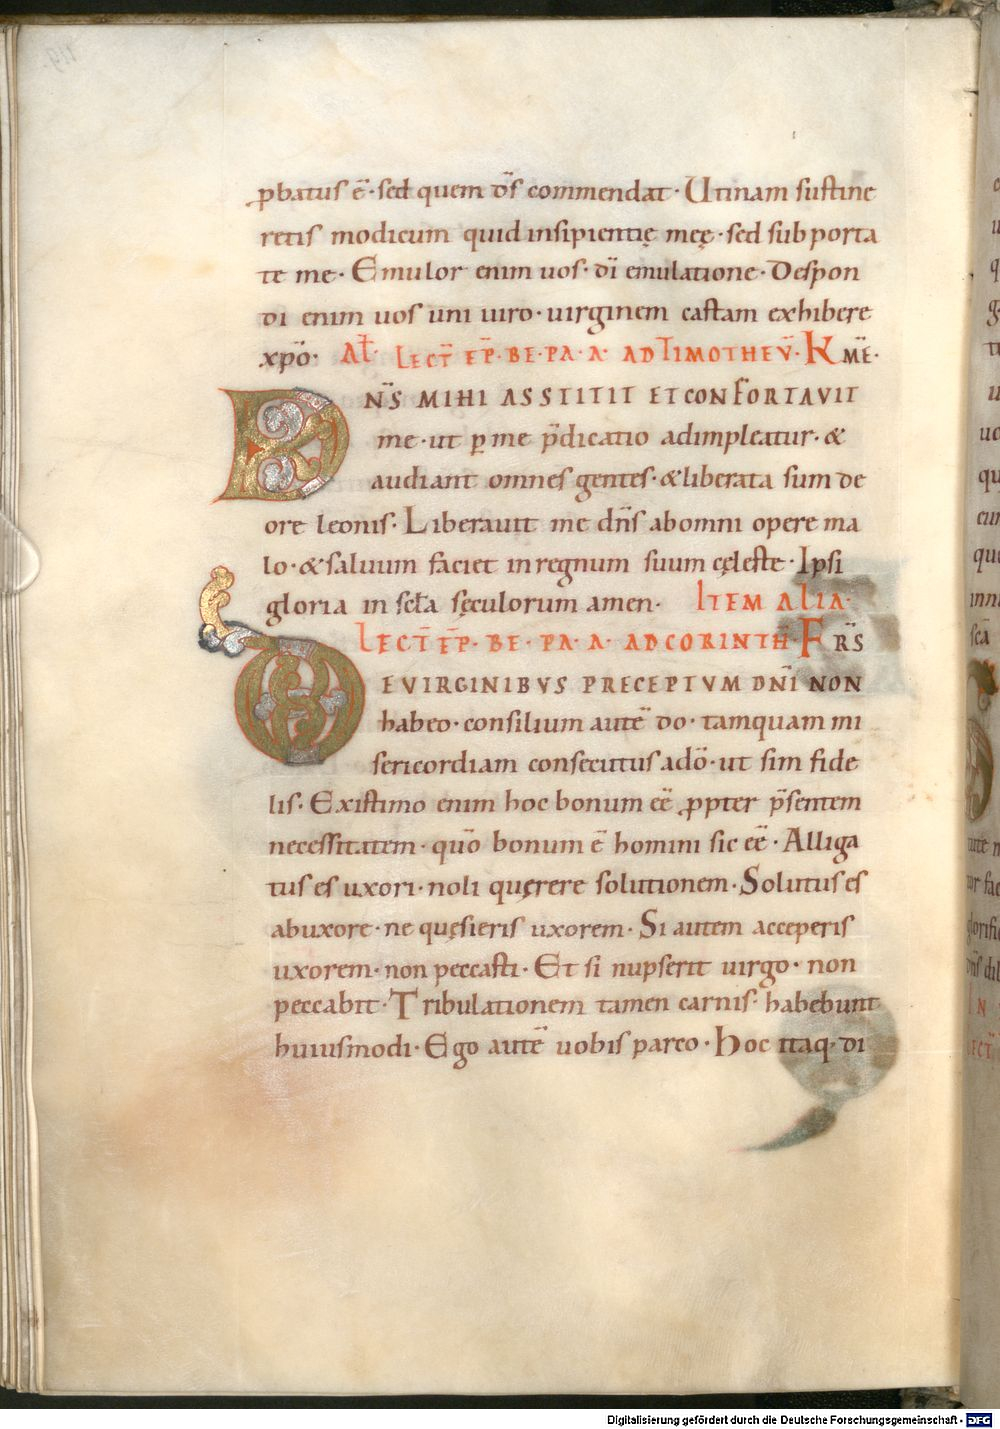 ꝓbatus ē · sed quem d̄s commendat · Utinam sustine
retis modicum quid insipientię meę · sed sub porta
te me · Emulor enim uos · dī emulatione · Despon
di enim uos uni uiro · uirginem castam exhibere
xp̄o · AƚT · LECT̄ EP̄ · BE · PA · A · AD TIMOTHEV̄ · K M̄E ·
DN̄S MIHI ASSTITIT ET CONFORTAVIT
me · ut ꝑ me p̄dicatio adimpleatur · &
audiant omnes gentes · & liberata sum de
ore leonis · Liberauit me dn̄s ab omni opere ma
lo · & saluum faciet in regnum suum cęleste · Ipsi
gloria in scƚa sęculorum amen · ITEM ALIA ·
LECT̄ EP̄ · BE · PA · A · AD CORINTH̄ · FR̄S
DE VIRGINIBVS PRECEPTVM DN̄I NON
habeo · consilium autē do · tamquam mi
sericordiam consecutus a dō · ut sim fide
lis · Existimo enim hoc bonum eē ꝓpter p̄sentem
necessitatem · quō bonum ē homini sic eē · Alliga
tus es uxori · noli quęrere solutionem · Solutus es
ab uxore · ne quęsieris uxorem · Si autem acceperis
uxorem · non peccasti · Et si nupserit uirgo · non
peccabit · Tribulationem tamen carnis · habebunt
huiusmodi · Ego autē uobis parco · Hoc itaq· di
Digitalisierung gefördert durch die Deutsche Forschungsgemeinschaft - DFG